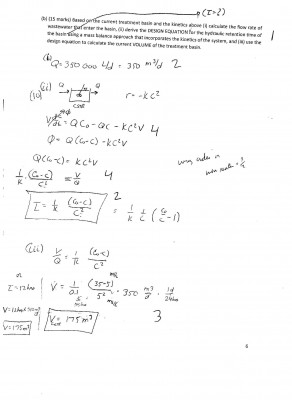 (I+2)
(b) (15 marks) Based on the current treatment basin and the kinetics above (i) calculate the flow rate of
wastewater that enter the basin, (ii) derive the DESIGN EQUATION for the hydraulic retention time of
the basin using a mass balance approach that incorporates the kinetics of the system, and (iii) use the
design equation to calculate the current VOLUME of the treatment basin.
(b)
Q = 350 000 L/d = 350 m³/d 2
(ii)
Q Q
r = -kC²
V dC/dt = QC₀ - QC - kC²V 4
0 = Q(C₀-C) - kC²V
Q(C₀-C) = kC²V
1/k (C₀-C)/C² = V/Q 4
τ = 1/k (C₀-C)/C² 2 = 1/k 1/C (C₀/C - 1)
(iii) V/Q = 1/k (C₀-C)/C²
or
V = 1/0.1 (35-5)/5² · 350 m³/d · 1d/24hrs
V = 175 m³
V = 175 m³ 3
6